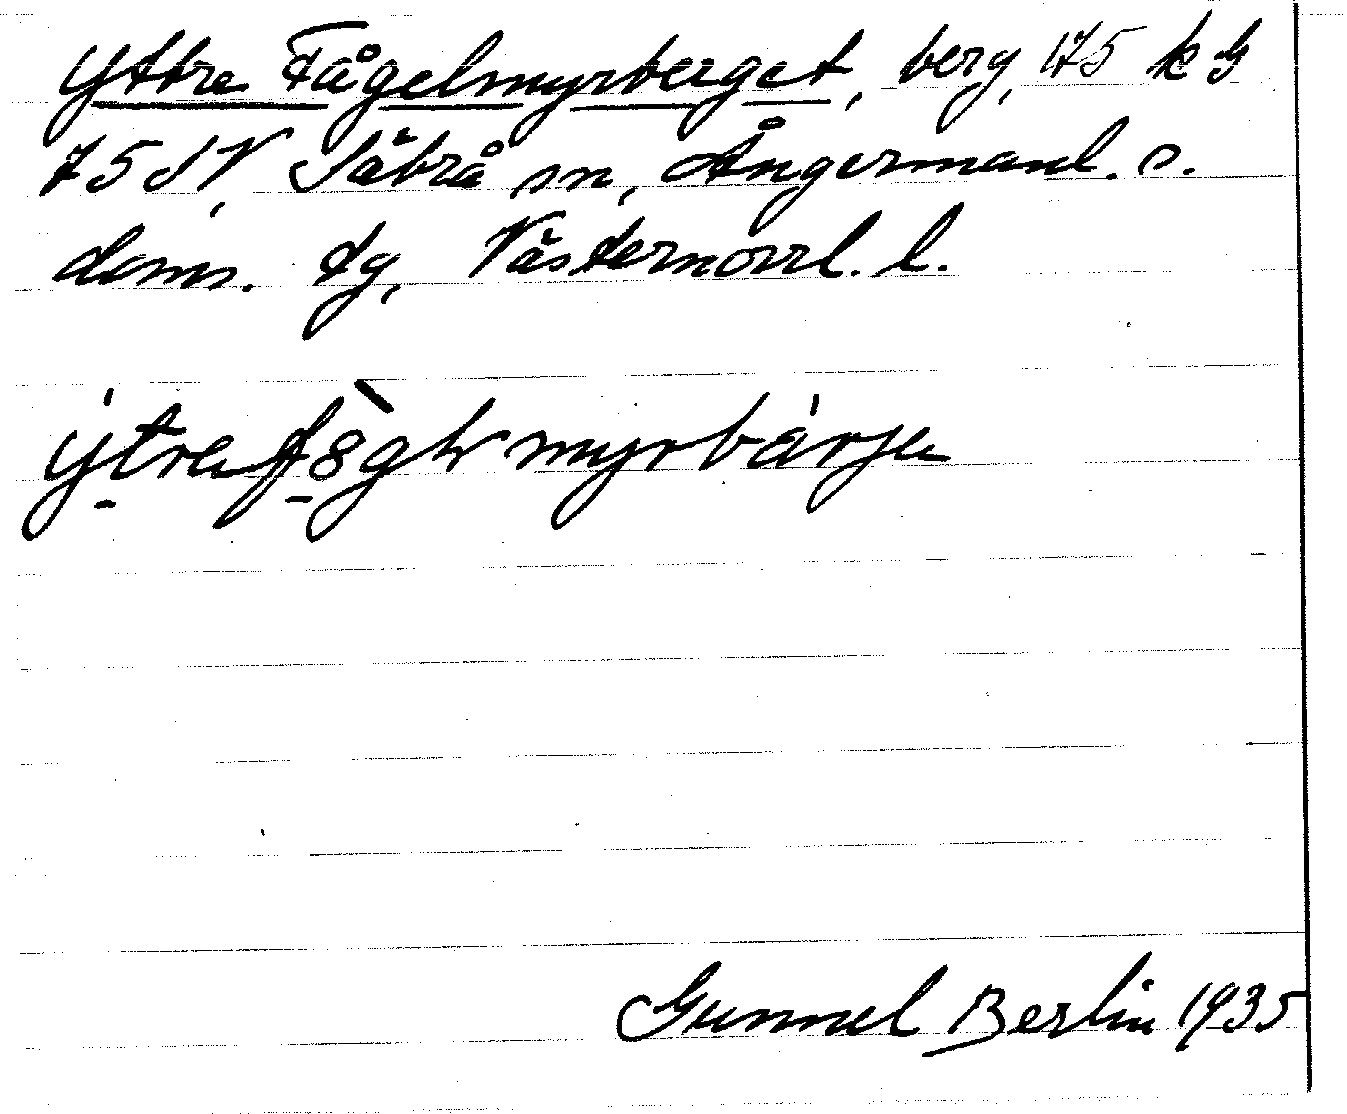 Yttre Fågelmyrberget, berg, 175 k G
75 SV, Säbrå sn, Ångermanl. s.
doms. tg, Västernorrl. l.
ýtrafògḷmyrbárja
Gunnel Berlin 1935